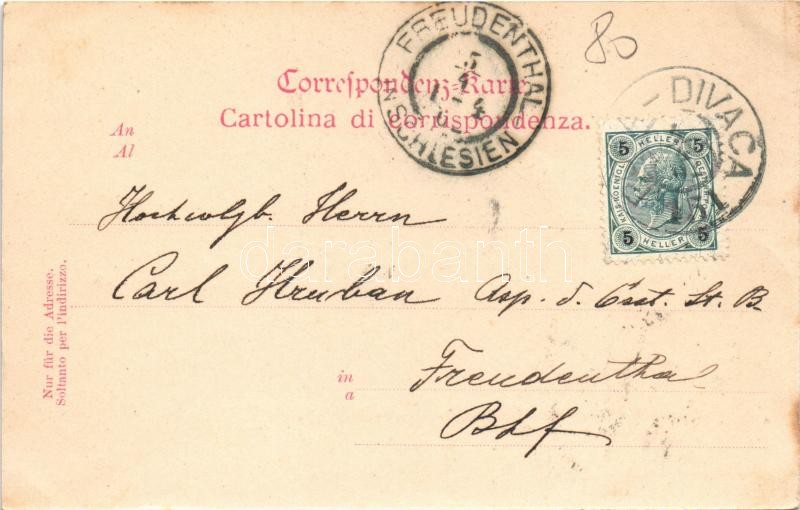 80
FREUDENTHAL
SCHLESIEN
DIVACA
Correspondenz-Karte.
Cartolina di corrispondenza.
An
Al
5 HELLER 5
KAIS. KOENIGL.
5 HELLER 5
Hochwolgb. Herrn
darabanth
Carl Hruban Asp. d. Östt. St. B.
in
a
Freudenthal
Bhf
Nur für die Adresse.
Soltanto per l'indirizzo.